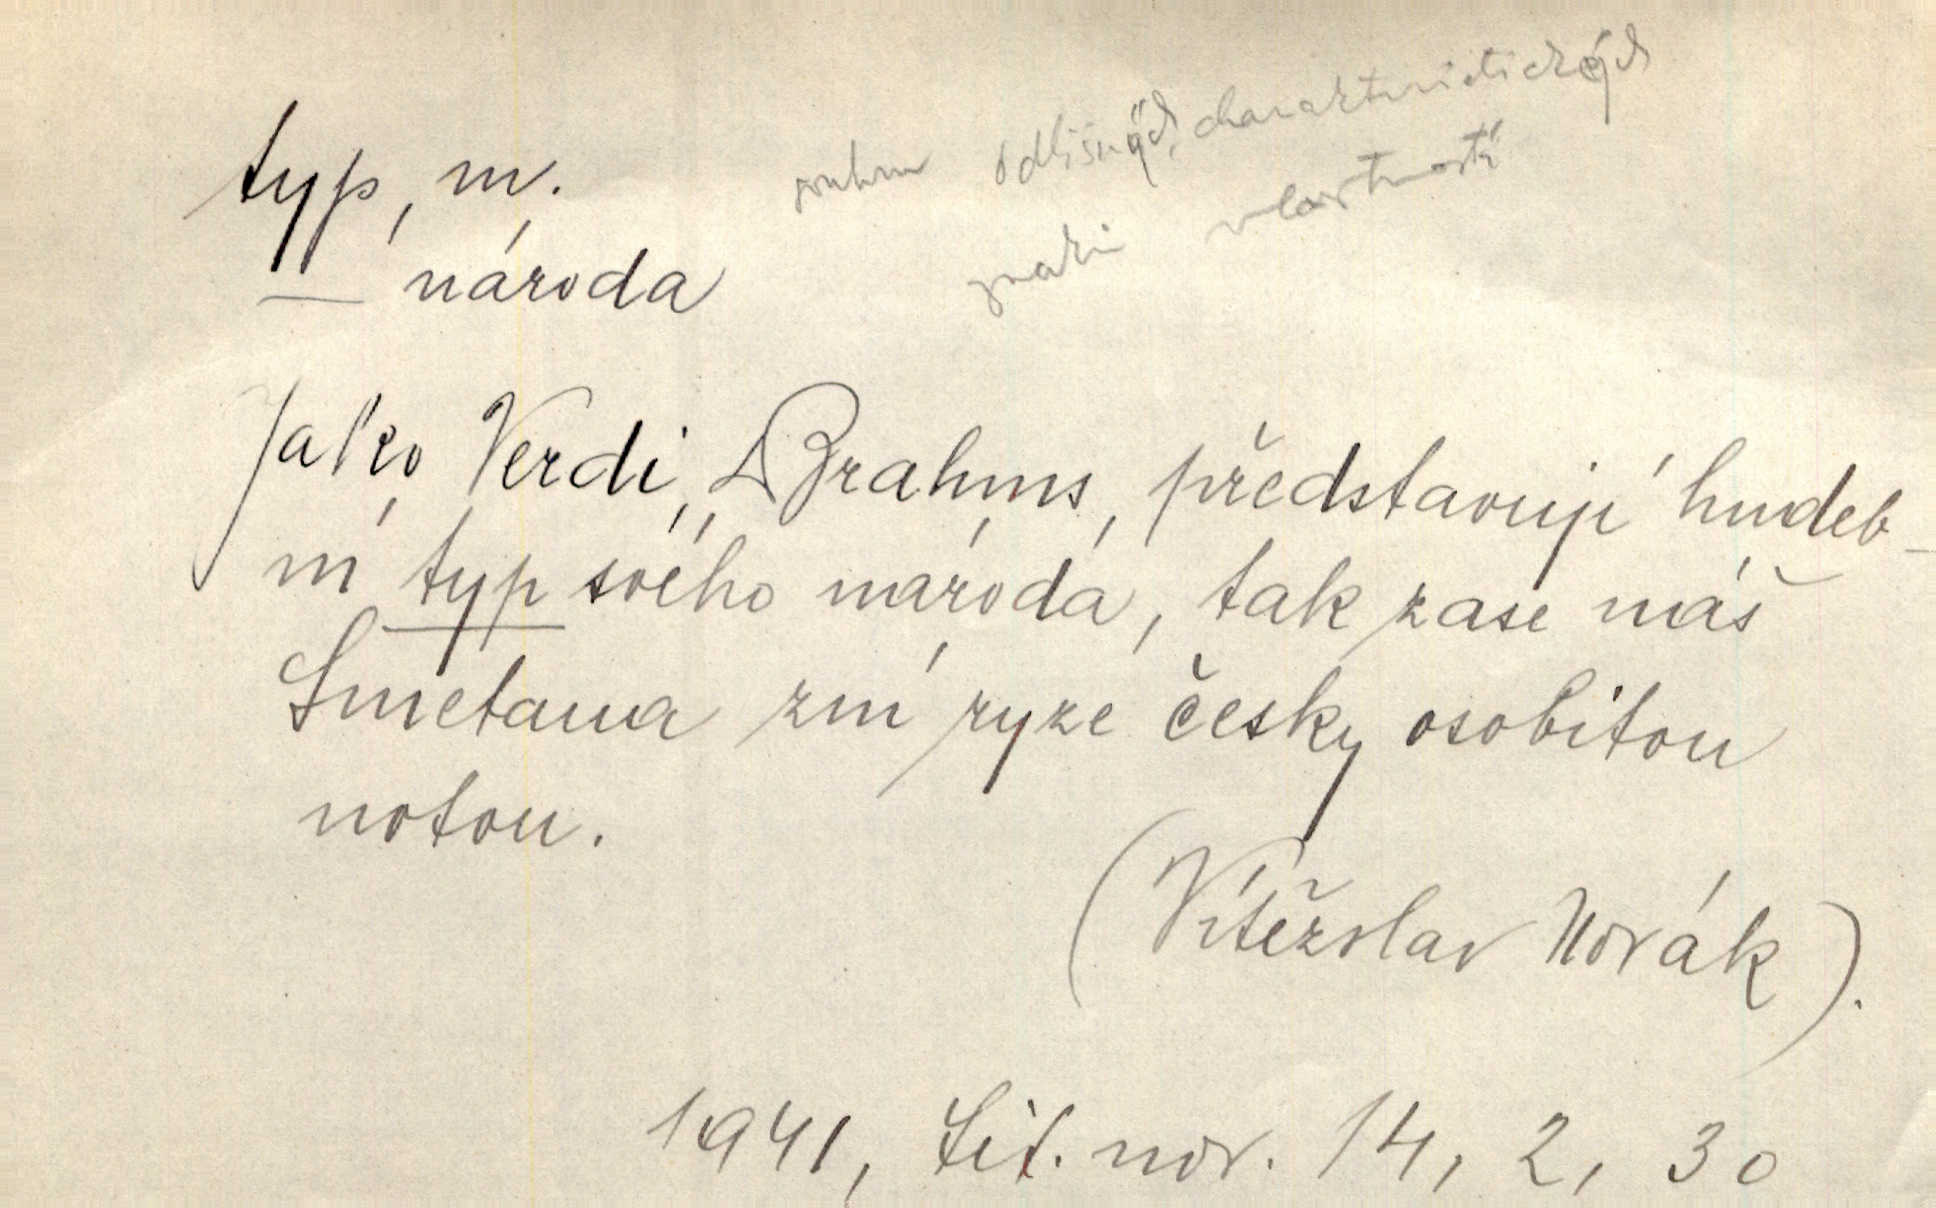 typ, m.
souhrn odlišných, charakteristických
znaků vlastností
— národa
Jako Verdi, Brahms, představují hudeb-
ní typ svého národa, tak zase náš
Smetana zní ryze česky osobitou
notou.
(Vítězslav Novák).
1941, Lit. nov. 14, 2, 30